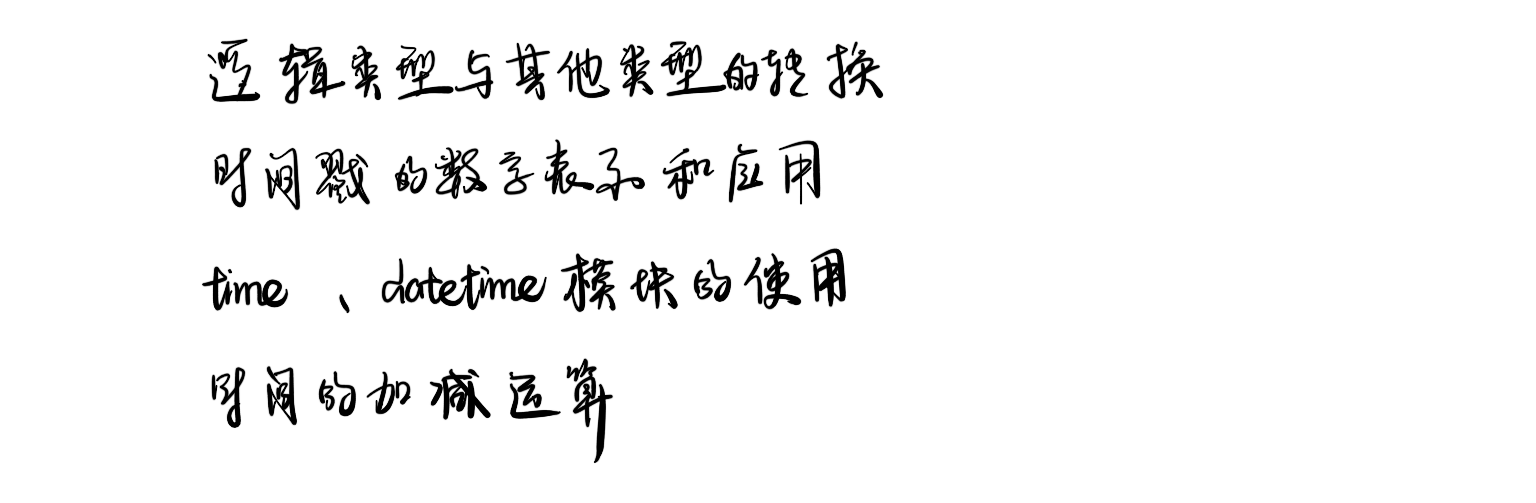 逻辑类型与其他类型的转换
时间戳的数字表示和应用
time、datetime模块的使用
时间的加减运算